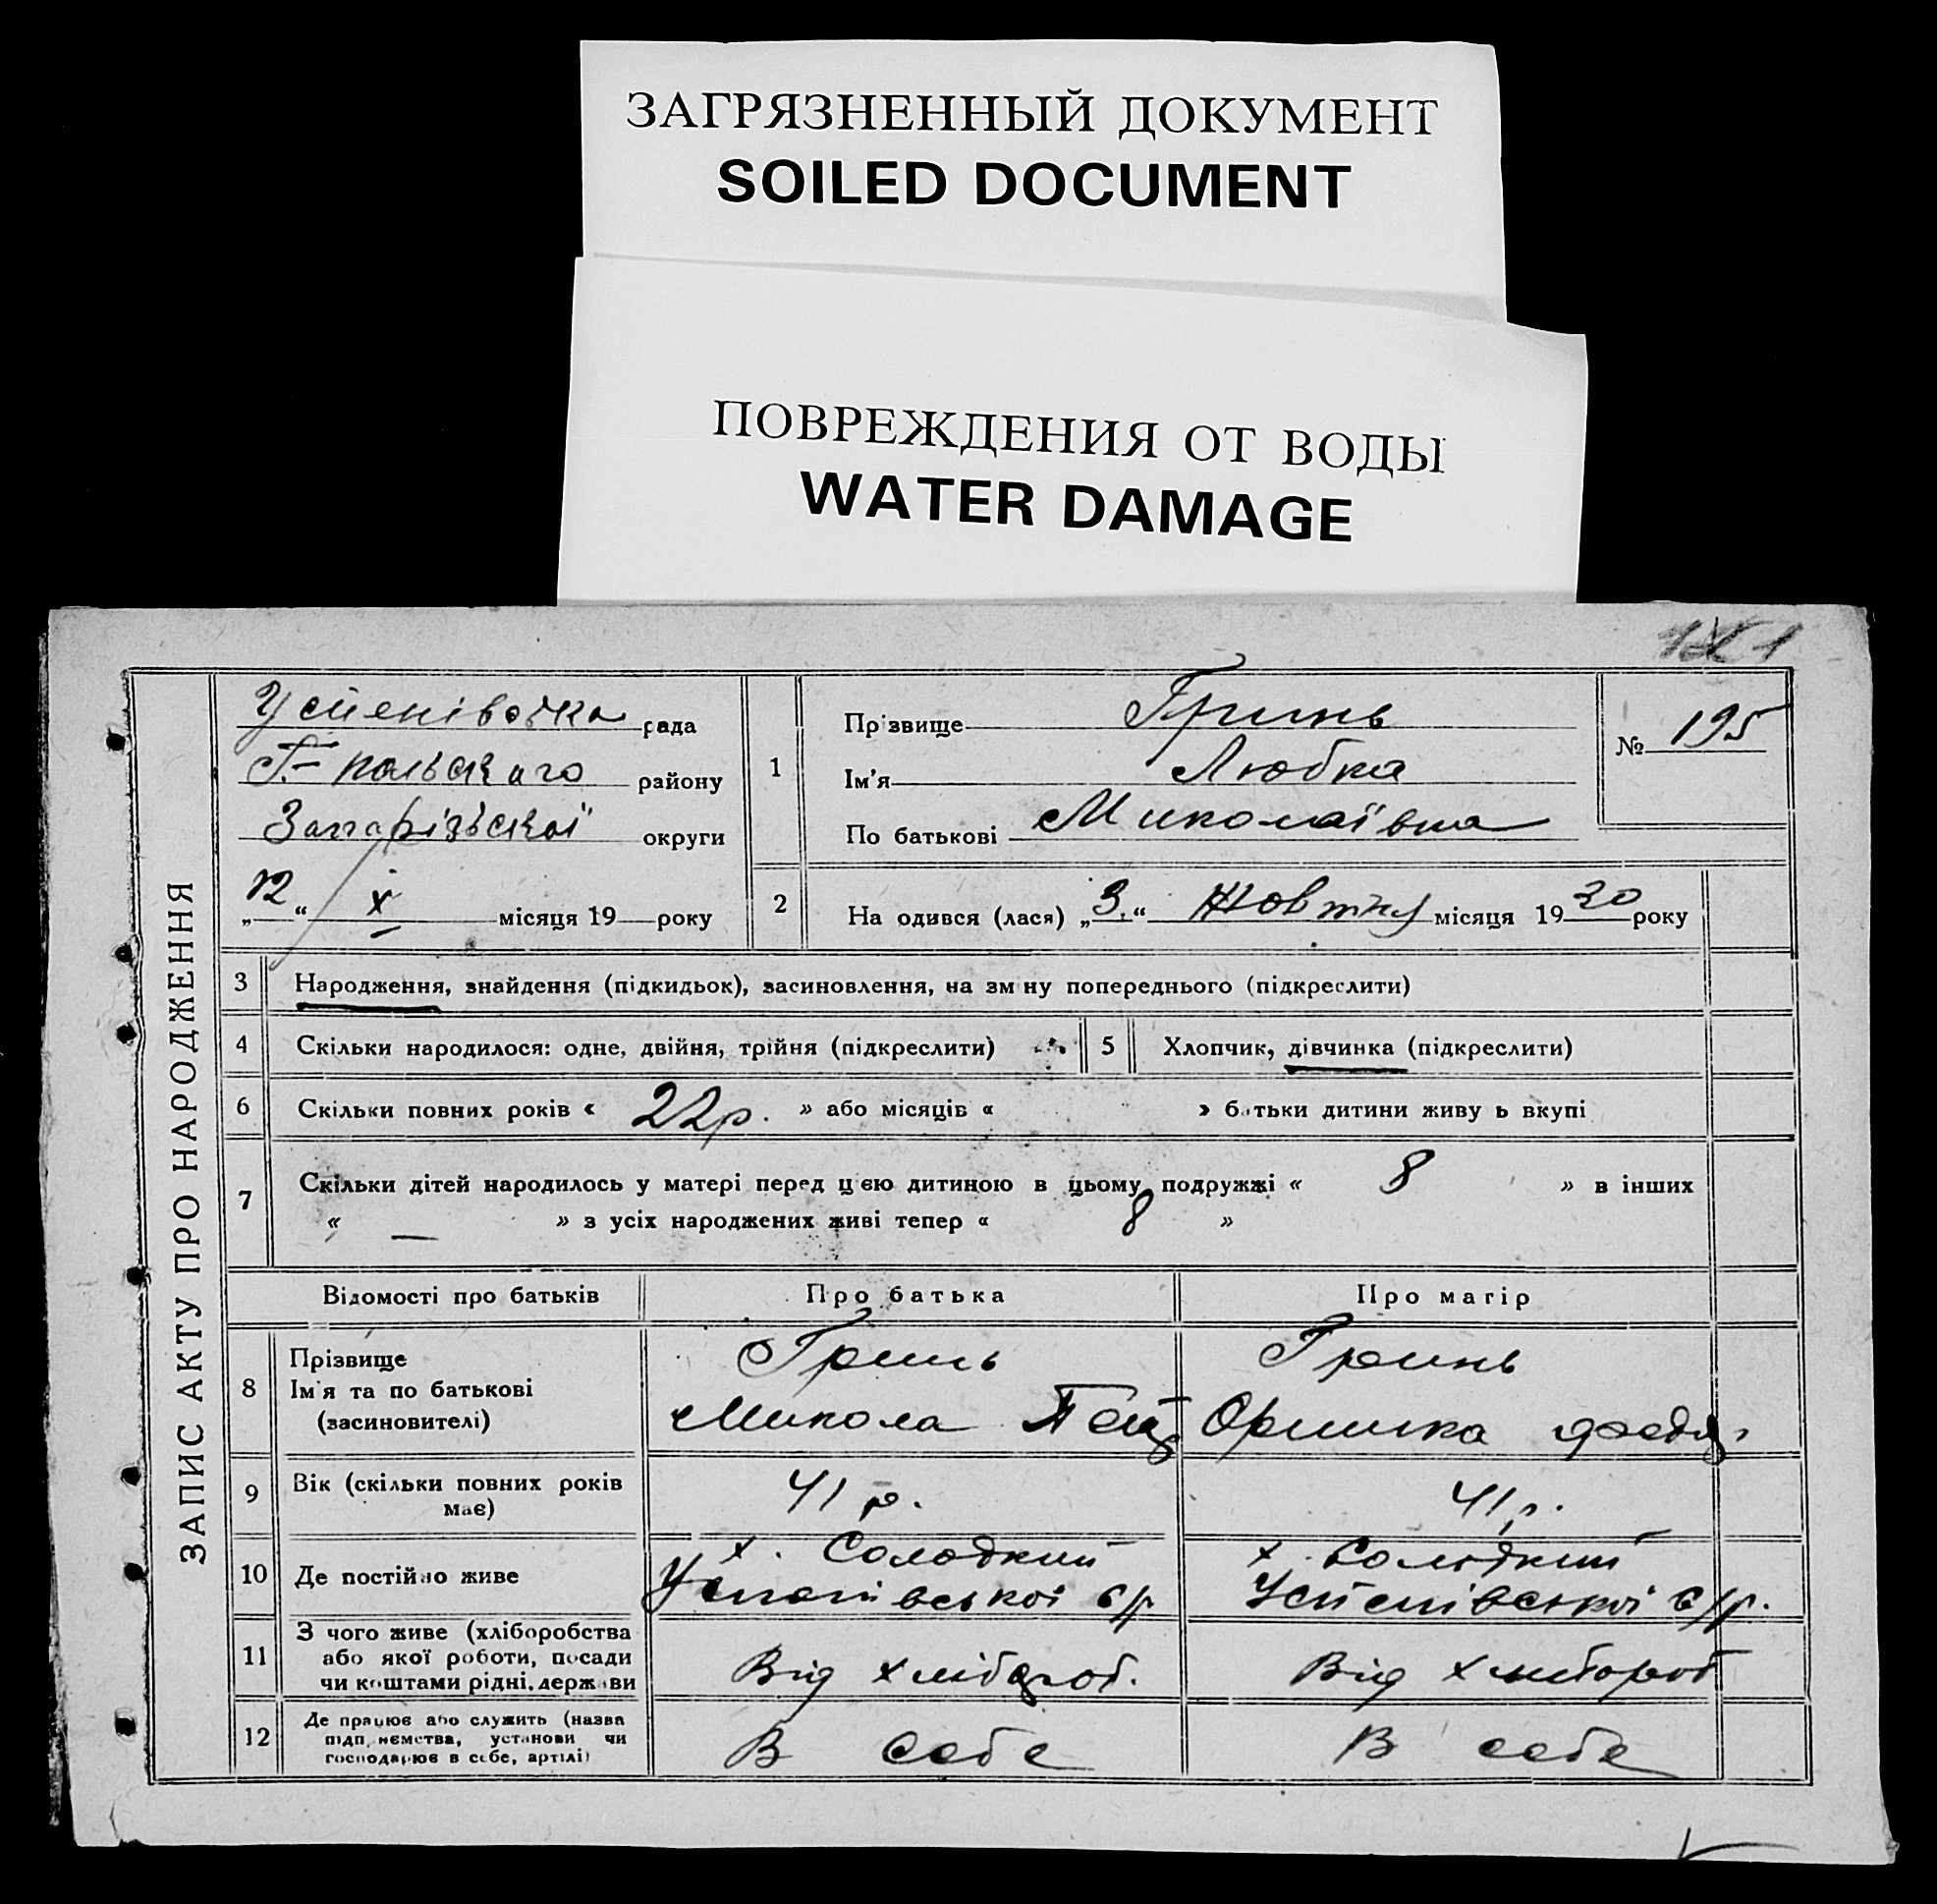 ЗАГРЯЗНЕННЫЙ ДОКУМЕНТ
SOILED DOCUMENT
ПОВРЕЖДЕНИЯ ОТ ВОДЫ
WATER DAMAGE
ЗАПИС АКТУ ПРО НАРОДЖЕННЯ
Успенівська рада
Г-польского району
Запорізької округи
„12“ X місяця 19 року
1
Прізвище Гринь
Ім'я Любка
По батькові Миколаївна
№ 195
2 На одився (лася) „3.“ Жовтня місяця 1930 року
3 Народження, знайдення (підкидьок), засиновлення, на зм ну попереднього (підкреслити)
4 Скільки народилося: одне, двійня, трійня (підкреслити)
5 Хлопчик, дівчинка (підкреслити)
6 Скільки повних років « 22р. » або місяців « » батьки дитини живу ь вкупі
7 Скільки дітей народилось у матері перед цією дитиною в цьому подружжі « 8 » в інших
« — » з усіх народжених живі тепер « 8 »
Відомості про батьків Про батька Про матір
8 Прізвище Гринь Гринь
Ім'я та по батькові Микола Оришка
(засиновителі)
9 Вік (скільки повних років має) 41 р. 41 р.
10 Де постійно живе х. Солодкий х. Солодкий
Успенівської с/р Успенівської с/р.
11 З чого живе (хліборобства Від хлібороб. Від хлібороб
або якої роботи, посади
чи коштами рідні, держави
12 Де працює або служить (назва В себе В себе
підп иємства, установи чи
господарює в себе, артілі)